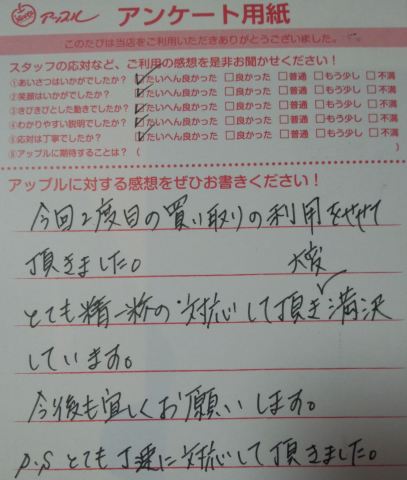 アップル アンケート用紙
このたびは当店をご利用いただきありがとうございました。
スタッフの応対など、ご利用の感想を是非お聞かせください!
①あいさつはいかがでしたか? ☑たいへん良かった □良かった □普通 □もう少し □不満
②笑顔はいかがでしたか? ☑たいへん良かった □良かった □普通 □もう少し □不満
③きびきびとした動きでしたか? ☑たいへん良かった □良かった □普通 □もう少し □不満
④わかりやすい説明でしたか? ☑たいへん良かった □良かった □普通 □もう少し □不満
⑤応対は丁寧でしたか? ☑たいへん良かった □良かった □普通 □もう少し □不満
⑥アップルに期待することは?( )
アップルに対する感想をぜひお書きください!
今回2度目の買い取りの利用をさせて
頂きました。
大変
とても精一杯の対応して頂き満足
しています。
今後も宜しくお願いします。
P.S とても丁寧に対応して頂きました。